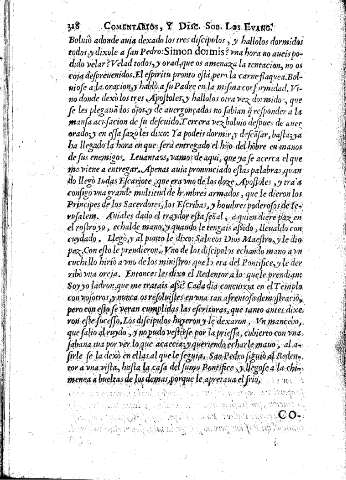 318 COMENTARIOS, Y DISC. SOB. LOS EVANG.
Boluiò adonde auia dexado los tres discipulos, y hallolos dormidos
todos, y dixole a san Pedro: Simon dormis? vna hora no aueis po-
dido velar? Velad todos, y orad, que os amenaza la tentacion, no os
coja desprouenidos. El espiritu pronto està, pero la carne flaquea. Bol-
uiose a la oracion, y hablò a su Padre en la misma conformidad. Vi-
no donde dexò los tres Apostoles, y hallolos otra vez dormido, que
se les plegauā los ojos, y de auergonçados no sabian q̃ responder a la
mansa acusacion de su descuido. Tercera vez boluio despues de auer
orado, y en esta sazō les dixo: Ya podeis dormir, y descāsar, basta: ya
ha llegado la hora en que serà entregado el hijo del hōbre en manos
de sus enemigos. Leuantaos, vamos de aqui, que ya se acerca el que
me viene a entregar. Apenas auia pronunciado estas palabras, quan
do llegò Iudas Escariote, que era vno de los doze Apostoles, y traìa
consigo vna grande multitud de hōbres armados, que le dieron los
Principes de los Sacerdotes, los Escribas, y hombres poderosos de Ie-
rusalem. Auiales dado el traydor esta señal, a quien diere paz en
el rostro yo, echalde mano, y quando le tengais asido, lleualdo con
cuydado. Llegò, y al punto le dixo: Salueos Dios Maestro, y le dio
paz. Con esto le prendieron. Vno de los discipulos echando mano a vn
cuchillo hiriò a vno de los ministros que era del Pontifice, y le der
ribò vna oreja. Entonces les dixo el Redentor a los que le prendian:
Soy yo ladron, que me tratais assi? Cada dia concurria en el Templo
con vosotros, y nunca os resoluistes en vna tan afrentosa demōstraciō,
pero con esto se veran cumplidas las escrituras, que tanto antes dixe-
ron este sucesso. Los discipulos huyeron y le dexaron. Vn mancebo,
que saliò al ruydo, y no pudo vestirse por la priessa, cubierto con vna
sabana iva por ver lo que acaecia: y queriendo echarle mano, al a-
sirle se la dexò en ellas al que le seguia. San Pedro siguiò al Reden-
tor a vna vista, hasta la casa del sumo Pontifice, y llegose a la chi-
menea a bueltas de los demas, porque le apretaua el frio.
CO-